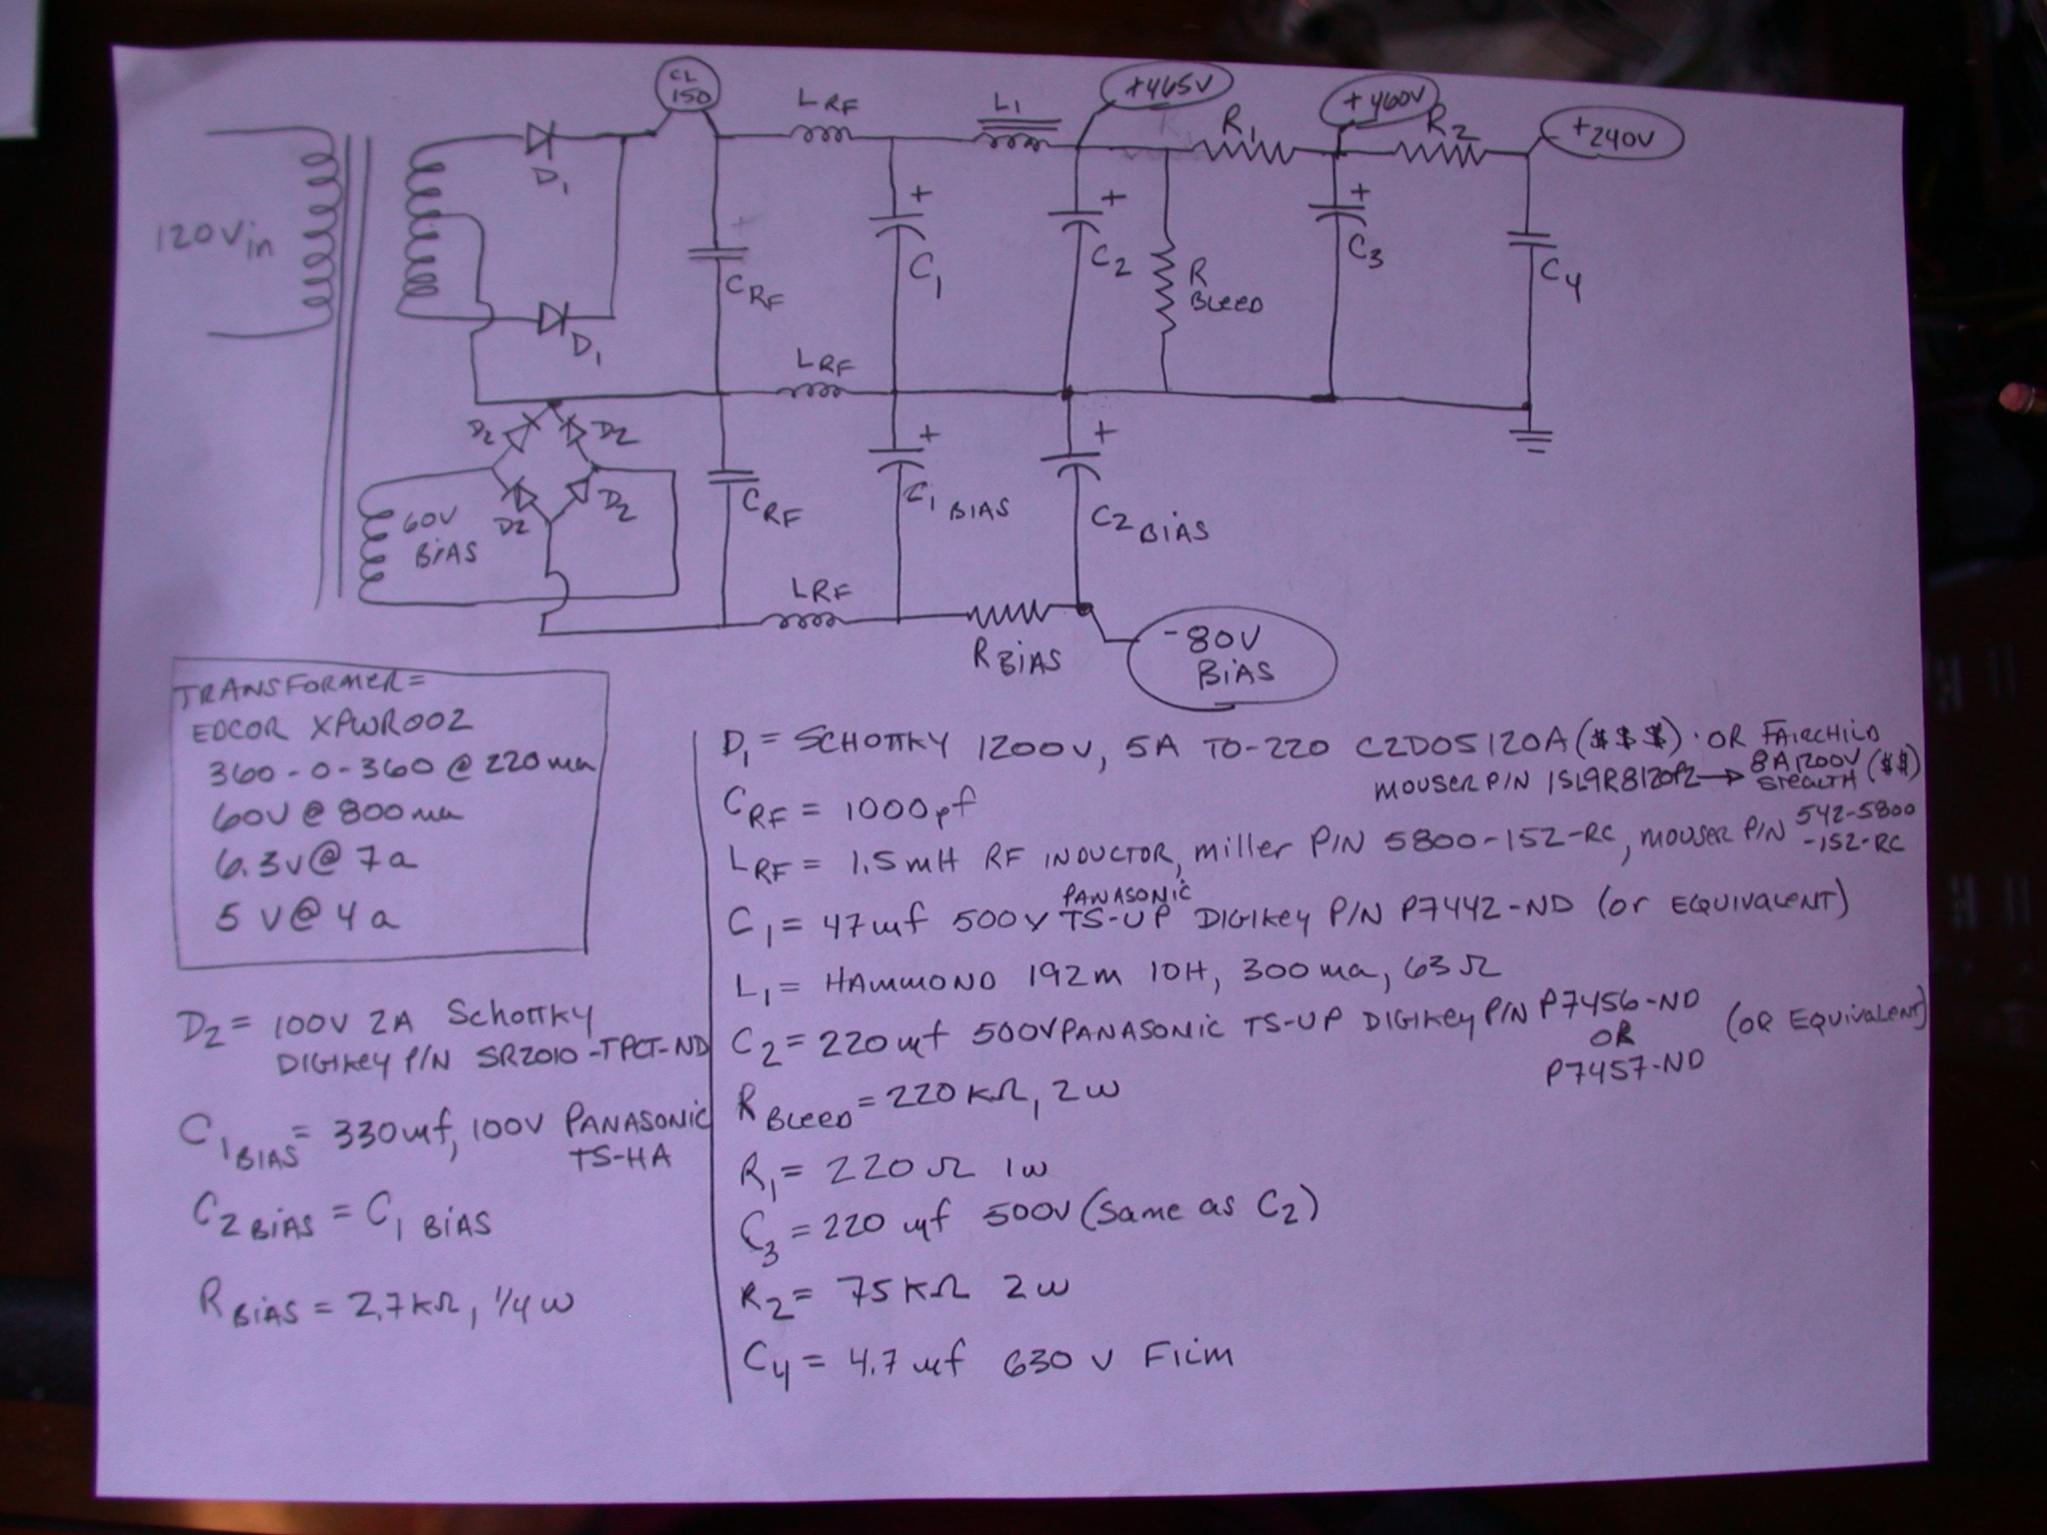 CL 150
LRF
L1
+465V
+460V
+240V
R1
R2
120Vin
D1
D1
+
CRF
+
C1
+
C2
R BLEED
+
C3
C4
LRF
D2
D2
D2
D2
60V
BIAS
CRF
+
C1 BIAS
+
C2 BIAS
LRF
RBIAS
-80V
BIAS
TRANSFORMER =
EDCOR XPWR002
360-0-360 @ 220ma
60V @ 800ma
6.3v@ 7a
5 V@ 4a
D2 = 100V 2A Schottky
DIGIKEY P/N SR2010-TPCT-ND
C1BIAS = 330uf, 100V PANASONIC
TS-HA
C2 BIAS = C1 BIAS
RBIAS = 2.7KΩ, 1/4 W
D1 = SCHOTTKY 1200V, 5A TO-220 C2D05120A ($$$) · OR FAIRCHILD
MOUSER P/N ISL9R8120P2 → 8A 1200V STEALTH ($$)
CRF = 1000pf
LRF = 1.5mH RF INDUCTOR, miller P/N 5800-152-RC, MOUSER P/N 542-5800-152-RC
C1 = 47uf 500V PANASONIC TS-UP DIGIKEY P/N P7442-ND (or EQUIVALENT)
L1 = HAMMOND 192m 10H, 300ma, 63Ω
C2 = 220uf 500V PANASONIC TS-UP DIGIKEY P/N P7456-ND OR P7457-ND (OR EQUIVALENT)
RBLEED = 220KΩ, 2W
R1 = 220Ω 1W
C3 = 220 uf 500V (Same as C2)
R2 = 75KΩ 2W
C4 = 4.7uf 630 V Film